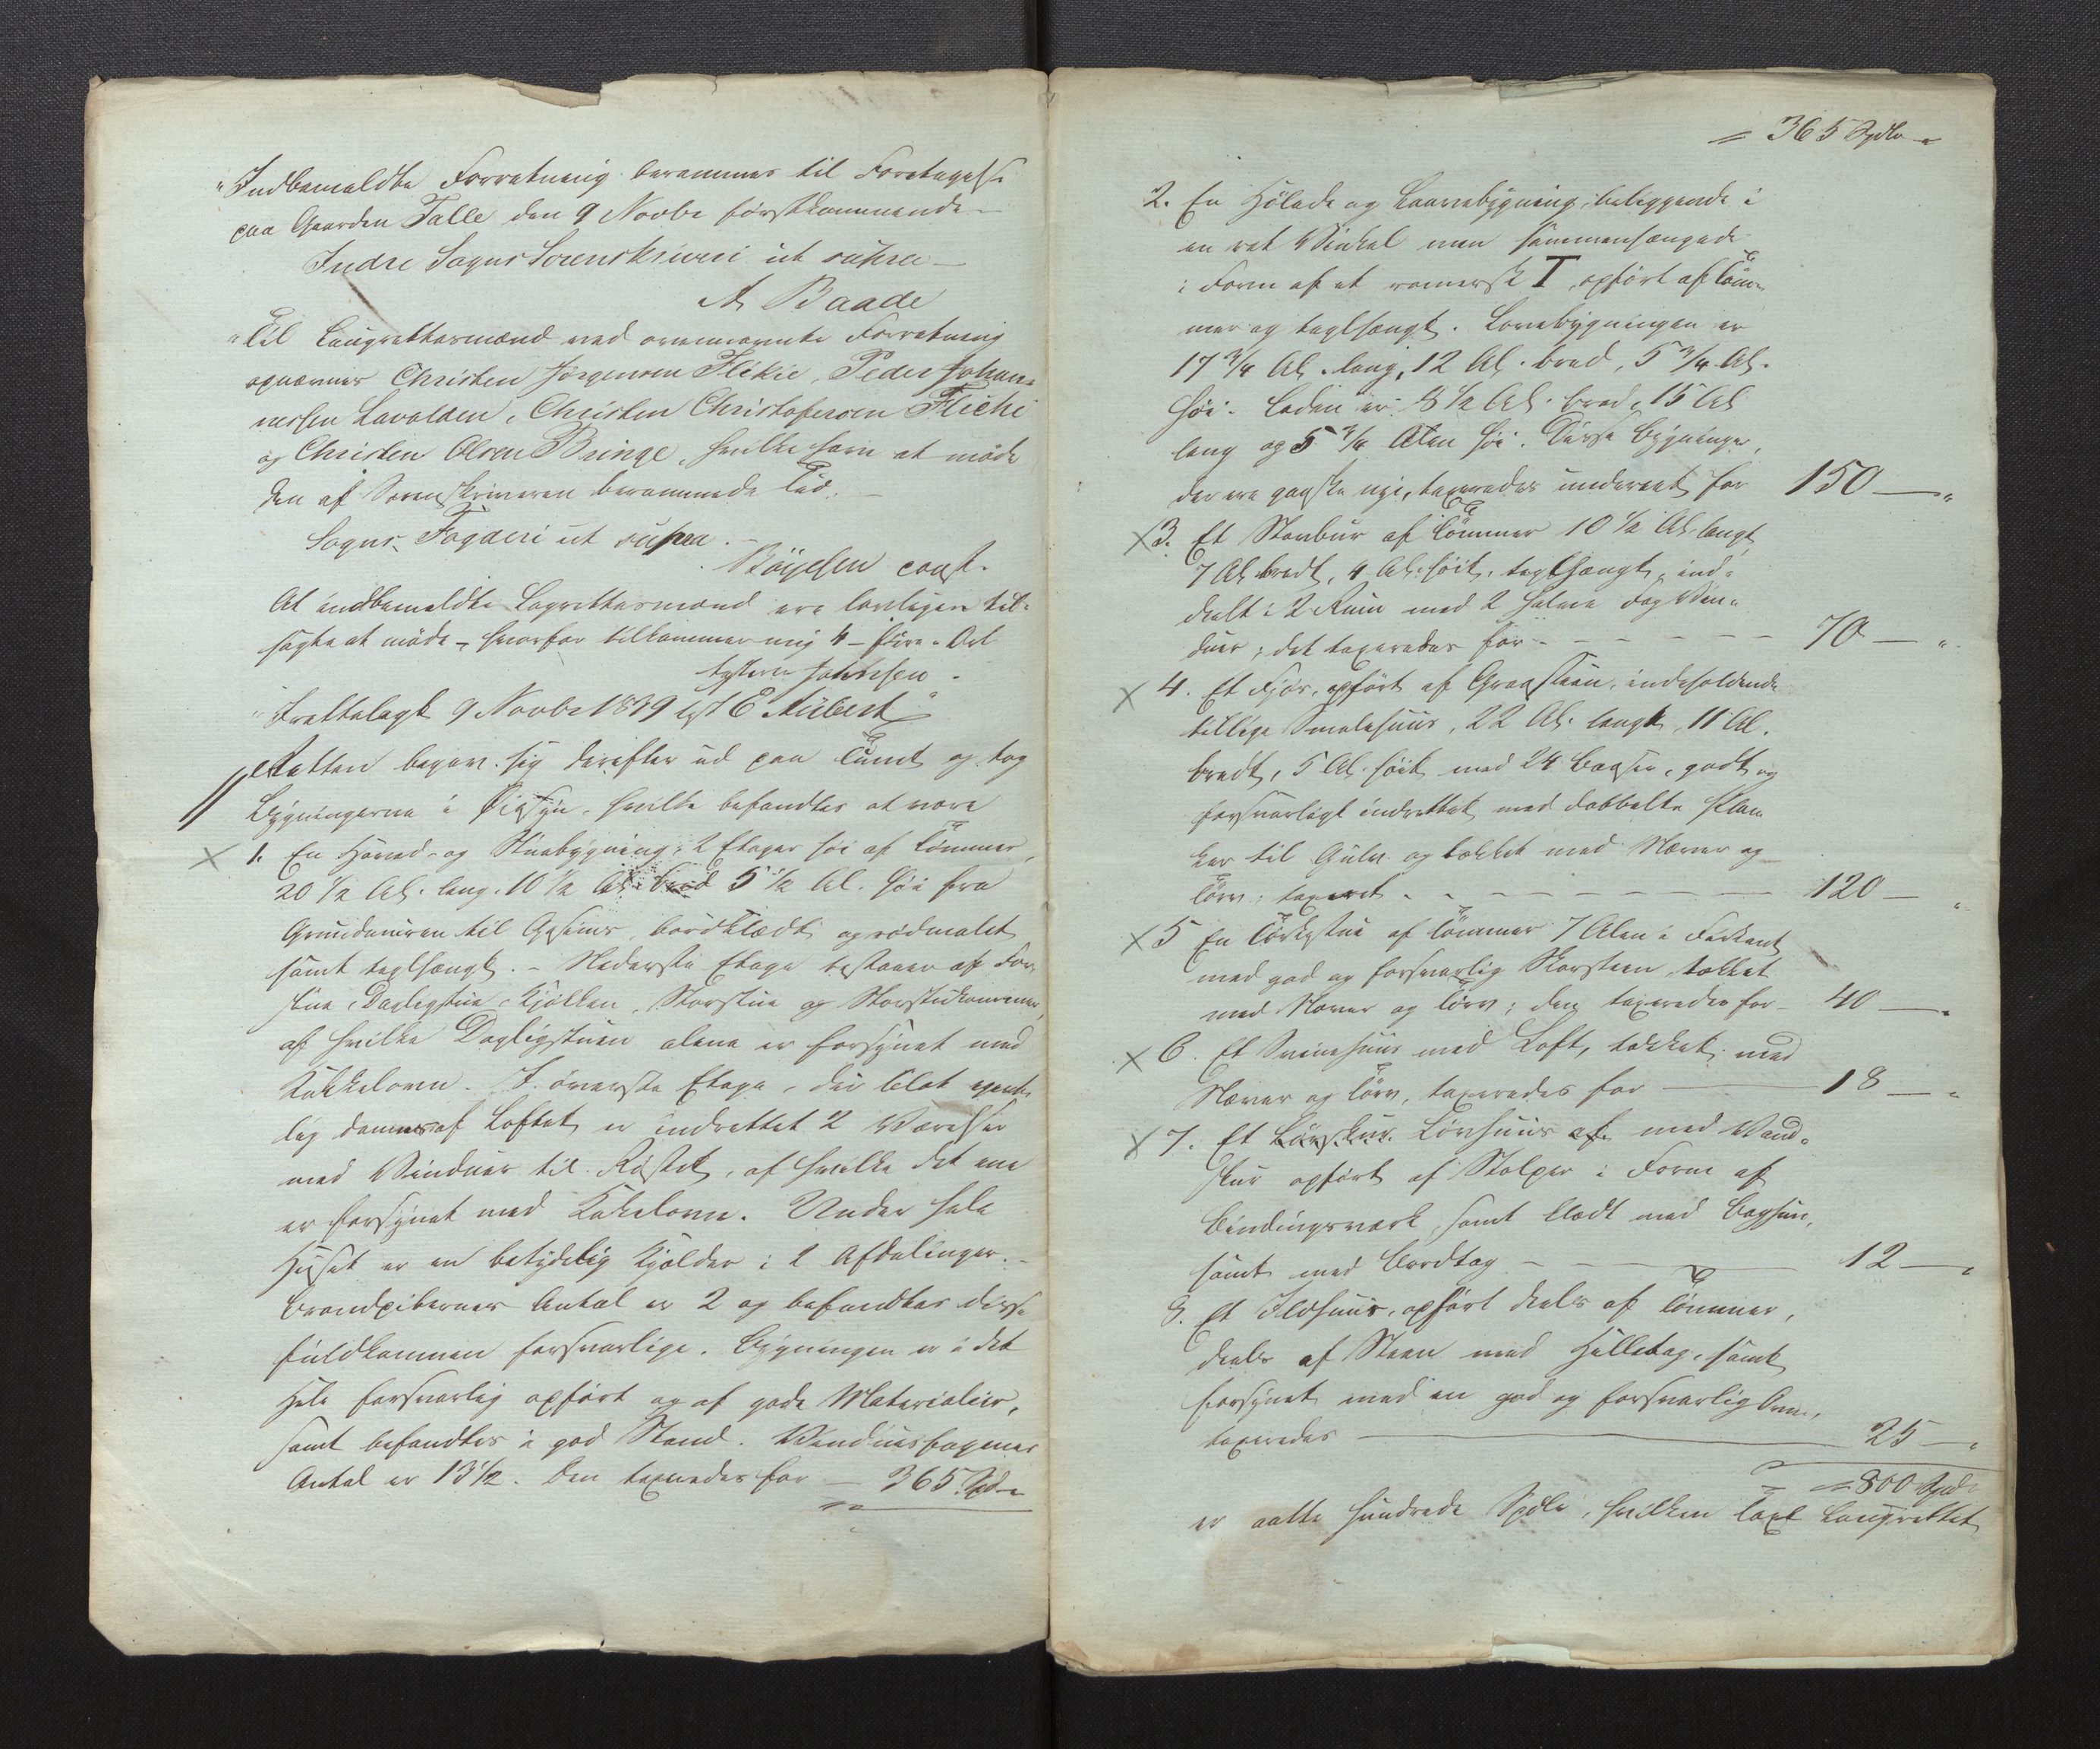 "Indbemeldte Forretning berammes til Foretagelse
paa Gaarden Talle den 9 Novbr førstkommende –
Indre Sogns Sorenskriveri ut supra –
A Baade
"Til Laugrettesmænd ved ovennævnte Forretning
opnævnes Christen Jørgensen Flikie, Peder Johan-
nessen Lavolden, Christen Christofersen Fliche
og Christen Olsen Bringe, hvilke have at møde
den af Sorenskriveren berammede Tid. –
Sogns Fogderi ut supra. –
Böyesen const.
At indbemeldte Lagrettesmænd ere lovligen til-
sagte at møde –, hvorfor tilkommer mig 4 – fire – Ort
Johnsen –
Fremlagt 9 Novbr 1839 E Aubert"
Retten begav sig derefter ud paa Tunet og tog
Bygningerne i Øiesyn, hvilke befandtes at være
1. En Hoved- og Stuebygning, 2 Etager høi af Tømmer,
20 ½ Al. lang, 10 ½ Al. bred 5 ½ Al. høi fra
Grundmuren til Gesims, bordklædt og rødmalet
samt teglhængt. – Nederste Etage bestaaer af For-
stue, Dagligstue, Kjøkken, Storstue og Storstuekammer,
af hvilke Dagligstuen alene er forsynet med
Kakkelovn. I øverste Etage, der blot egent-
lig dannes af Loftet, er indrettet 2 Værelser
med Vinduer til Røstet, af hvilke det ene
er forsynet med Kakelovn. Under hele
Huset er en betydelig Kjælder i 2 Afdelinger. –
Brandpibernes Antal er 2 og befandtes disse
fuldkommen forsvarlige. Bygningen er i det
Hele forsvarlig opført og af gode Materialier,
samt befandtes i god Stand. Vinduesfagenes
Antal er 13½. Den taxeredes for – 365 Spd –
= 365 Spdlr –
2. En Hølade og Laavebygning, beliggende i
en ret Vinkel men sammenhængende
i Form af et romersk T, opført af Tøm-
mer og teglhængt. Lovebygningen er
17 ¾ Al. lang, 12 Al. bred, 5 ¾ Al.
høi. Laden er 8 ½ Al. bred, 15 Al.
lang og 5 ¾ Alen høi. Disse Bygninger,
der ere ganske nye, taxeredes underet for 150 – "
3. Et Stabur af Tømmer 10 ½ Al. langt,
7 Al. bredt, 4 Al. høit, teglhængt, ind-
deelt i 2 Rum med 2 halve Fag Vin-
duer; det taxeredes for – – – – – – – 70 – "
4. Et Fjøs, opført af Graasteen, indeholdende
tillige Smalehuus, 22 Al. langt, 11 Al.
bredt, 5 Al. høit med 24 Baase, godt og
forsvarligt indrettet med dobbelte Plan-
ker til Gulv og tækket med Næver og
Tørv; taxeret – – – – – – – – – 120 – "
5 En Tørkestue af Tømmer 7 Alen i Firkant
med god og forsvarlig Skorsteen, tækket
med Næver og Tørv; den taxeredes for – 40 – "
6. Et Sviinehuus med Loft, tækket med
Næver og Tørv, taxeredes for – 18 – "
7. Et Løvskur Løvhuus af med Vand-
skur opført af Stolper i Form af
Bindingsværk, samt klædt med Baghun,
samt med Bordtag – – – 12 – "
8. Et Ildhuus, opført deels af Tømmer,
deels af Steen med Helletag, samt
forsynet med en god og forsvarlig Ovn,
taxeredes – 25 – "
= 800 Spdlr
er aatte hundrede Spdlr, hvilken Taxt Laugrettet